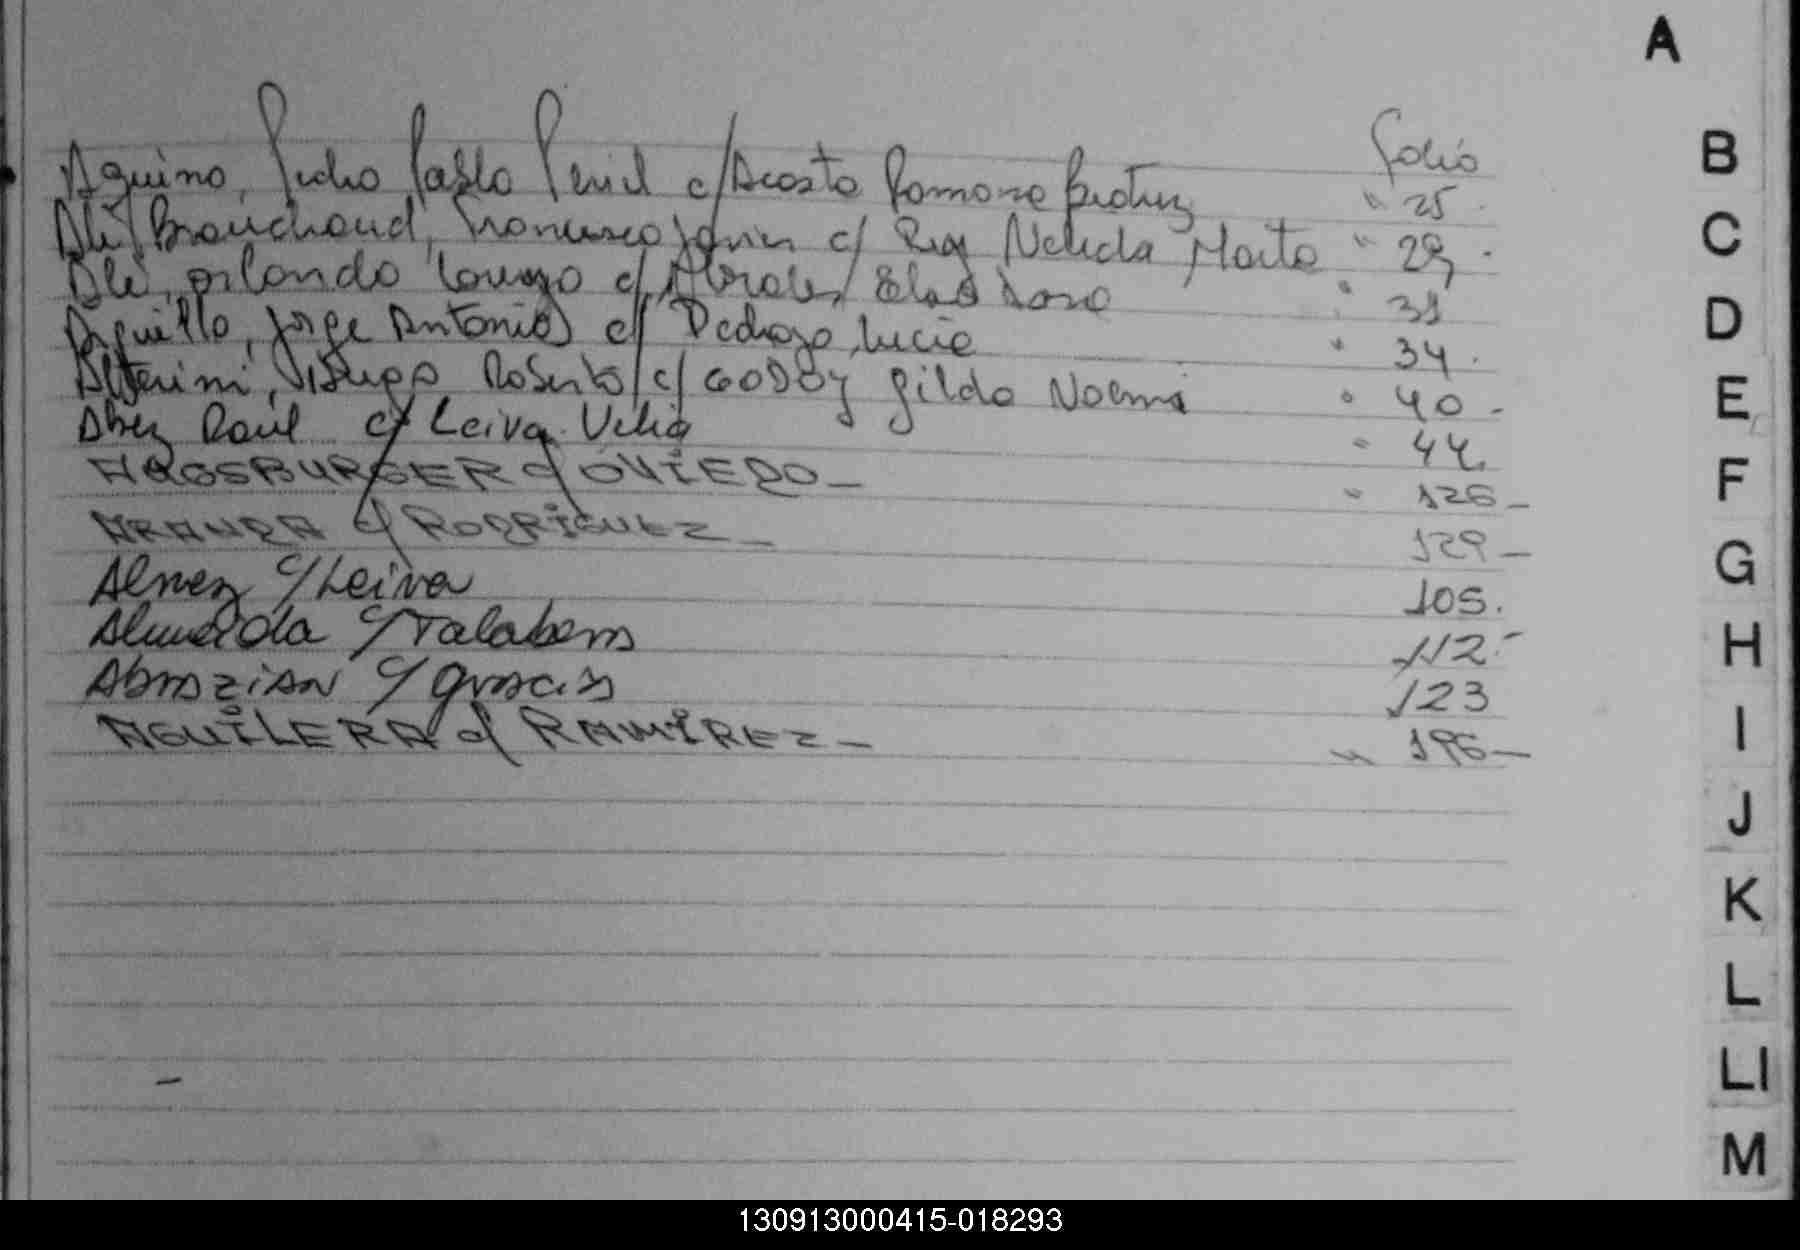 A
folio
Aquino, Pedro Pablo c/ Acosta Ramona Beatriz " 25
Alé Brouchoud, Francisco Javier c/ Rey Nelida Marta " 29
Alé, Orlando Lorenzo c/ Morales " 31
Arguello, Jorge Antonio c/ Pedrozo, Lucia " 34
Alterini, Hugo Roberto c/ GODOY Gilda Noemi " 40
Raúl c/ Leiva Velia " 44
c/ OVIEDO " 126
ARANDA c/ RODRIGUEZ 129
c/ Leiva 105.
Almeida c/ 112
c/ 123
AGUILERA c/ RAMIREZ " 196
B
C
D
E
F
G
H
I
J
K
L
Ll
M
130913000415-018293